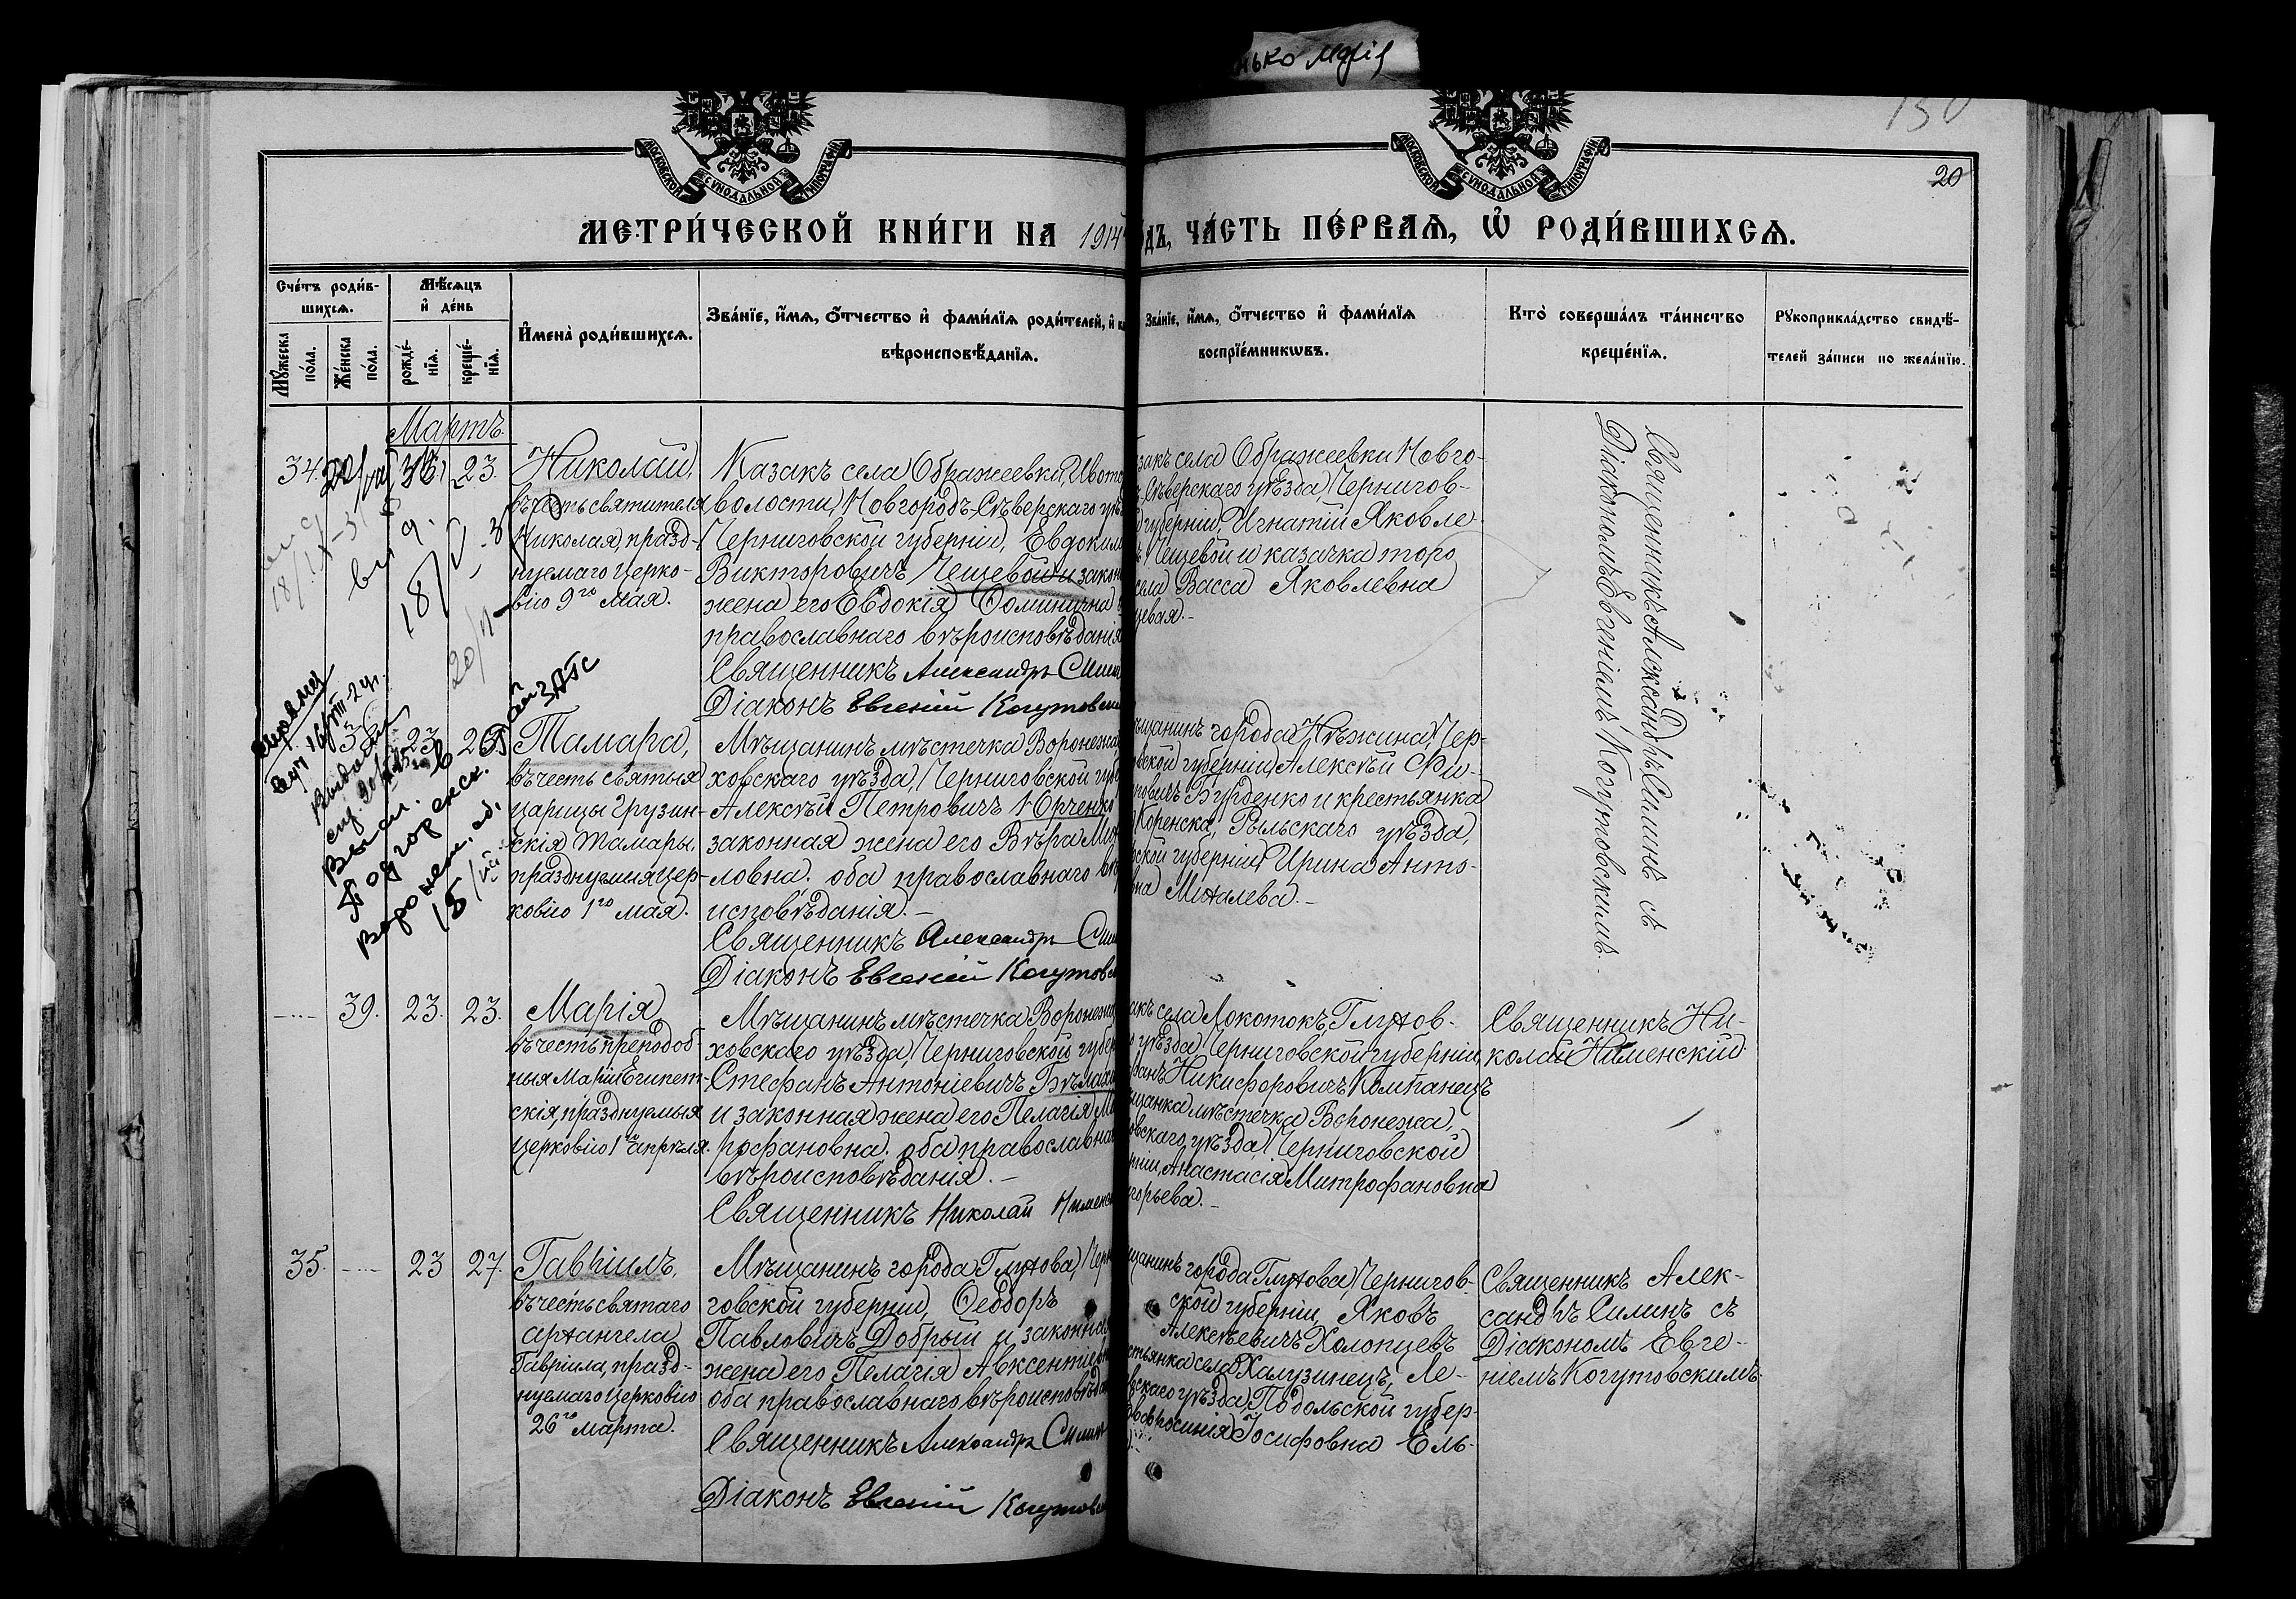 нько Марія
150
20
МОСКОВСКОЙ СУНОДАЛЬНОЙ ТИПОГРАФІИ
МОСКОВСКОЙ СУНОДАЛЬНОЙ ТИПОГРАФІИ
МЕТРИ́ЧЕСКОЙ КНИ́ГИ НА 1914
дъ, ЧА́СТЬ ПЕ́РВАѦ, Ѿ РОДИ́ВШИХСѦ.
Сче́тъ роди́в-
шихсѧ.
Мꙋ́жеска по́ла.
Же́нска по́ла.
Мѣ́сѧцъ
и҆ де́нь
рожде́-
нїѧ.
креще́-
нїѧ.
И҆мена̀ роди́вшихсѧ.
Зва́нїе, и҆́мѧ, ѻ҆́тчество и҆ фами́лїѧ роди́телей, и҆
вѣроисповѣ́данїѧ.
Зва́нїе, и҆́мѧ, ѻ҆́тчество и҆ фами́лїѧ
воспрїе́мникѡвъ.
Кто̀ соверша́лъ та́инство
креще́нїѧ.
Рꙋкоприкла́дство свидѣ́-
телей за́писи по жела́нїю.
Мартъ.
34.
23.
Николай,
въ честь святителя
Николая, празд-
нуемаго Церко-
вію 9го Мая.
Казакъ села Ображеевки, Ивотс
волости, Новгородъ-Сѣверскаго уѣ
Черниговской губерніи, Евдоким
Викторовичъ Пещевой и закон
жена его Евдокія Доминична
православнаго вѣроисповѣданія
Священникъ Александръ Силин
Діаконъ Евгеній Когутовски
закъ села Ображеевки Новго-
Сѣверскаго уѣзда, Чернигов-
губерніи, Игнатій Яковле
Пещевой и казачка того
села Васса Яковлевна
щевая.-
Священникъ Александръ Силинъ съ
Діакономъ Евгеніемъ Когутовскимъ.
18/IX-31
20/II
38.
23
26
Тамара,
въ честь святыя
царицы Грузин-
скія Тамары,
празднуемыя Цер-
ковію 1го Мая.
Мѣщанинъ мѣстечка Воронежа
ховскаго уѣзда, Черниговской губе
Алексѣй Петровичъ Юрченко
законная жена его Вѣра Ми
ловна. оба православнаго вѣр
исповѣданія.-
Священникъ Александръ Сил
Діаконъ Евгеній Когутовс
ѣщанинъ города Нѣжина, Чер-
вской губерніи, Алексѣй Фи-
повичъ Бурденко и крестьянка
Коренска, Рыльскаго уѣзда,
ской губерніи, Ирина Анто-
вна Михалева.-
39.
23.
23.
Марія
въ честь преподоб-
ныя Маріи Египет-
скія, празднуемыя
Церковію 1го апрѣля.
Мѣщанинъ мѣстечка Воронежа
ховскаго уѣзда, Черниговской губер
Стефанъ Антоніевичъ Бѣлах
и законная жена его Пелагія Ми
рофановна. оба православнаго
вѣроисповѣданія.-
Священникъ Николай Нименс
акъ села Локотокъ, Глухов-
о уѣзда Черниговской губерніи,
фанъ Никифоровичъ Компанецъ
щанка мѣстечка Воронежа,
овскаго уѣзда, Черниговской
рніи, Анастасія Митрофановна
горьева.-
Священникъ Ни-
колай Нименскій.
35.
23
27.
Гавріилъ,
въ честь святаго
архангела
Гавріила, празд-
нуемаго Церковію
26го марта.
Мѣщанинъ города Глухова, Чер
говской губерніи, Ѳеодоръ
Павловичъ Добрый и законная
жена его Пелагія Авксентіев
оба православнаго вѣроисповѣда
Священникъ Александръ Силин
Діаконъ Евгеній Когутовс
щанинъ города Глухова, Чернигов-
ской губерніи, Яковъ
Алексѣевичъ Холопцевъ
стьянка села Халузинецъ, Ле-
вскаго уѣзда, Подольской губер-
Евфросинія Іосифовна Ель-
Священникъ Алек-
сандръ Силинъ съ
Діакономъ Евге-
ніемъ Когутовскимъ.